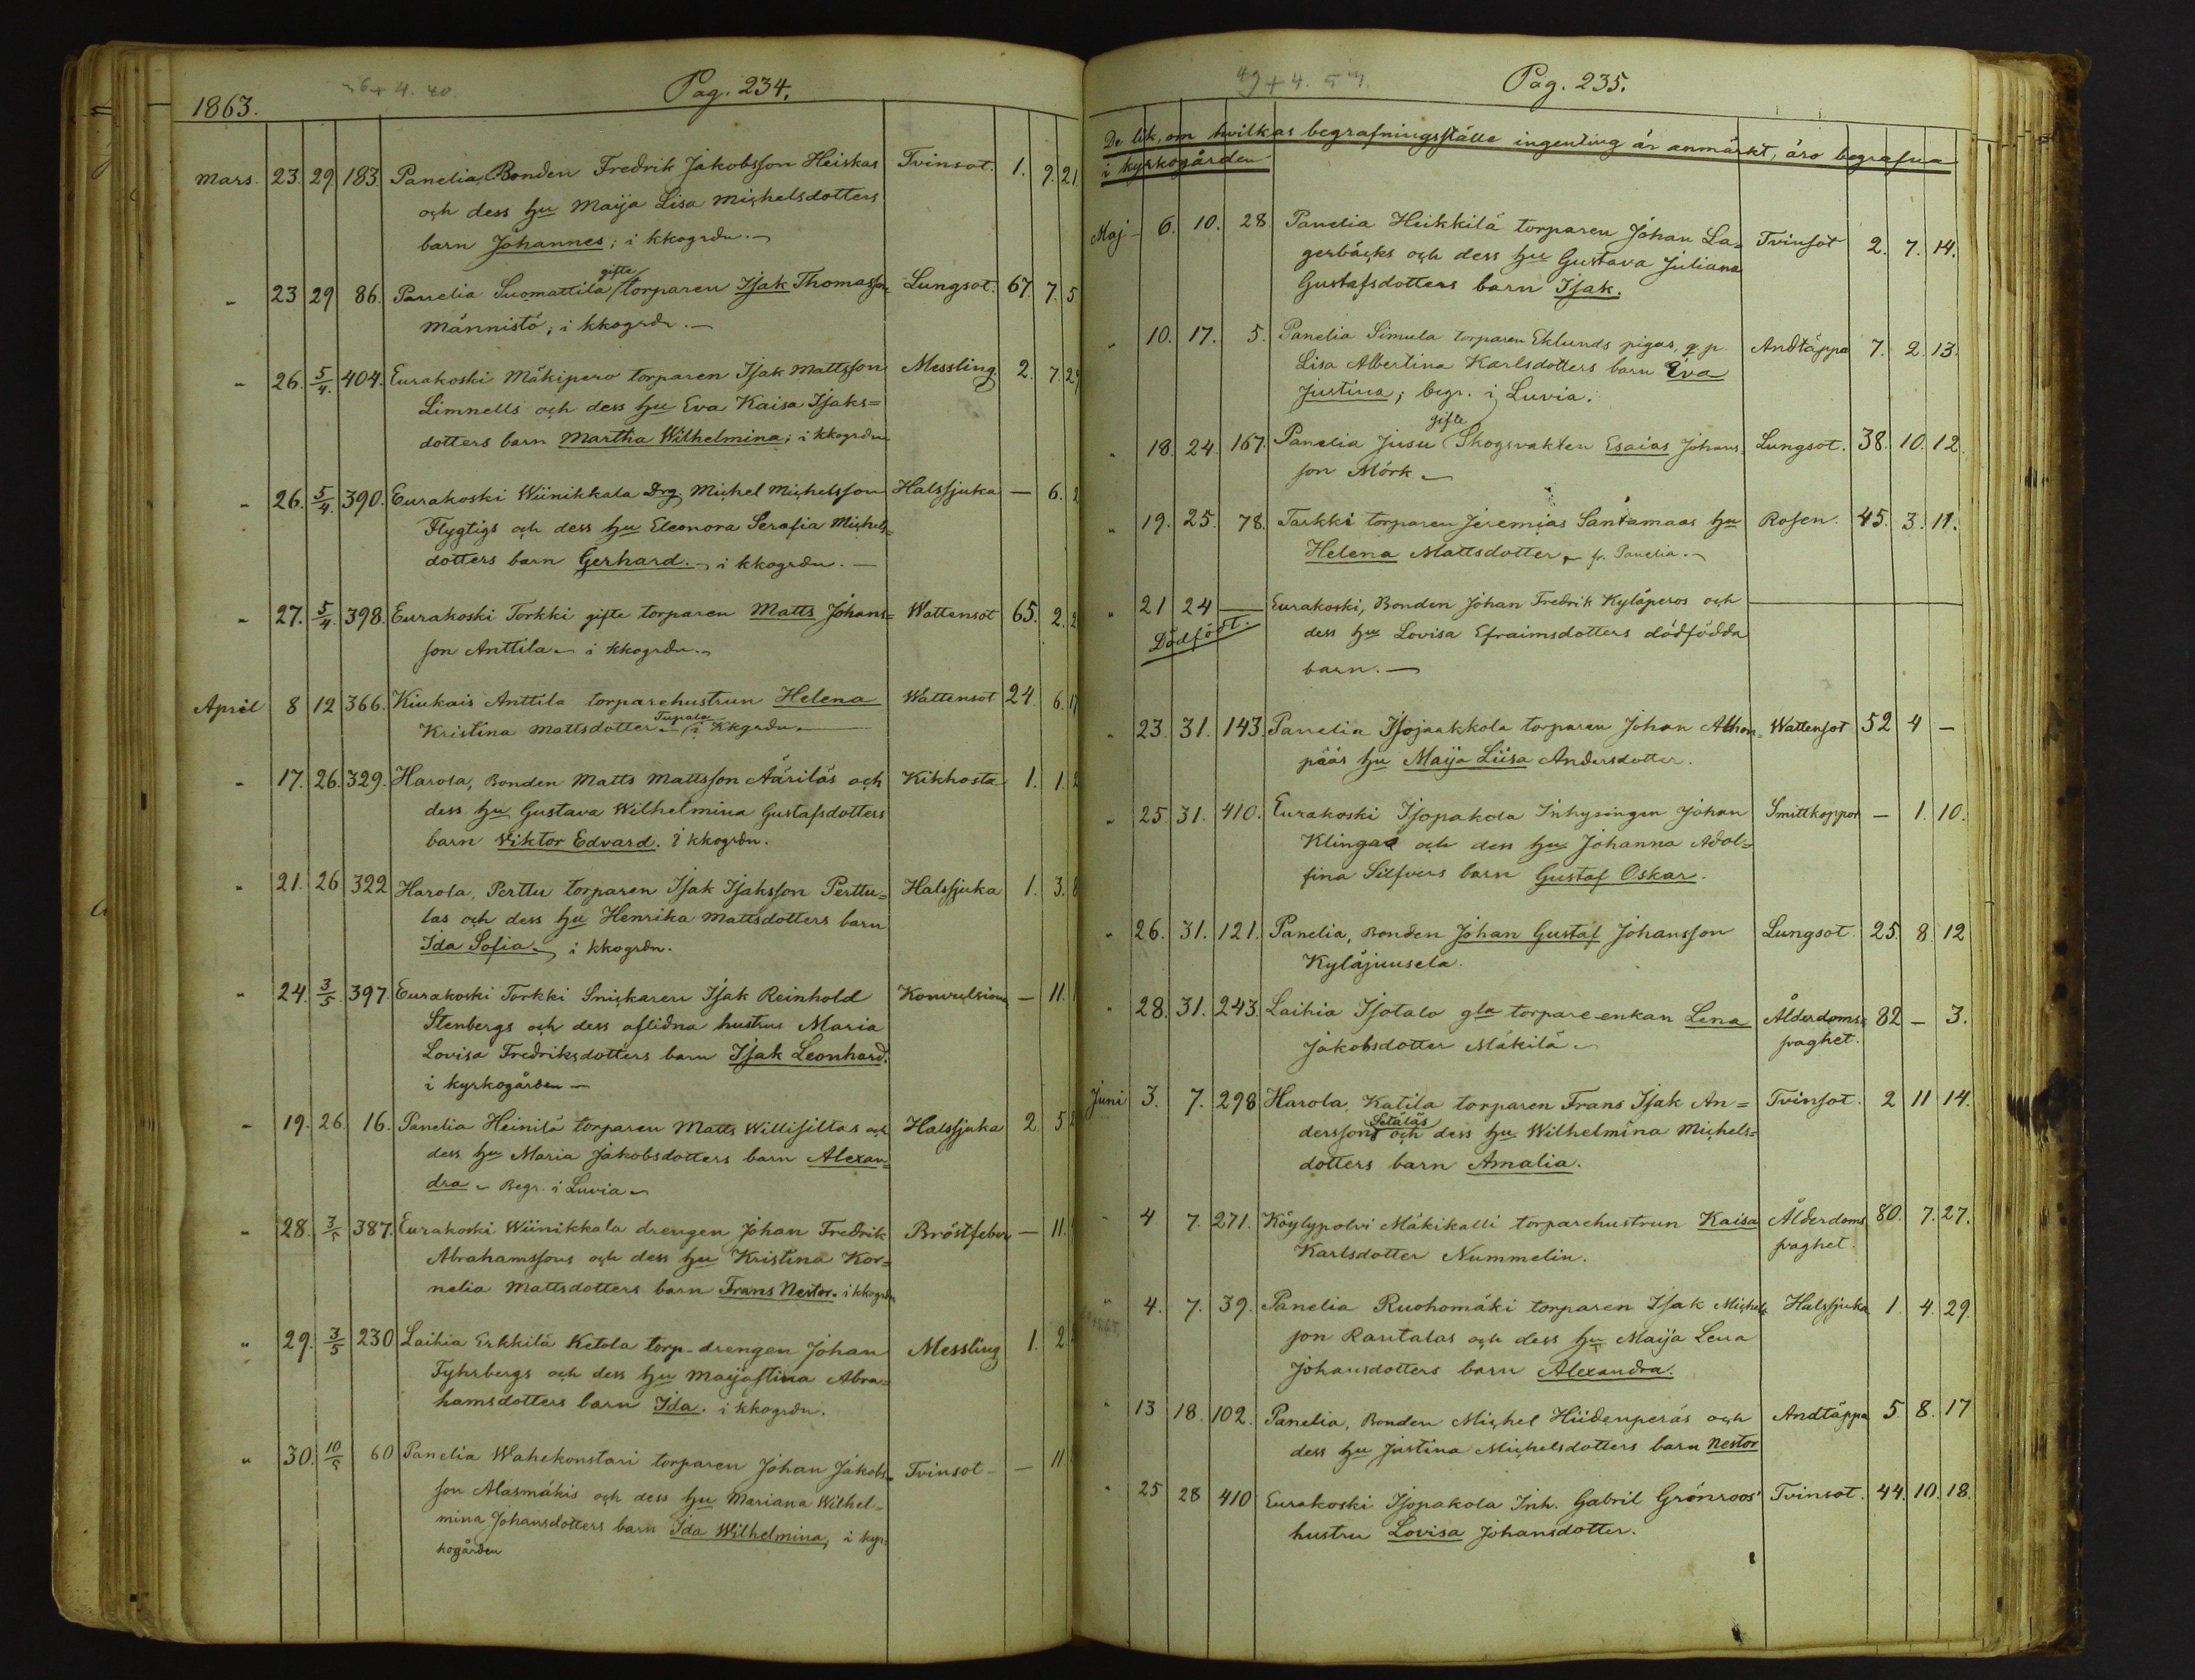 Pag. 234.
1863.
Mars. 23. 29. 183. Panelia, Bonden Fredrik Jakobsson Heiskas Tvinsot. 1. 9. 21
och dess hu Maija Lisa Michelsdotters
barn Johannes; i kkogrdn.
" 23 29 86. Panelia Suomattila gifte torparen Isak Thomasson Lungsot. 67. 7. 5
Männistö; i kkogrdn.
" 26. 5/4. 404. Eurakoski Mäkipero torparen Isak Mattsson Messling 2. 7. 29
Limnells och dess hu Eva Kaisa Isaks=
dotters barn Martha Wilhelmina; i kkogrdn
" 26. 5/4. 390. Eurakoski Wiinikkala Drg. Michel Michelsson Halssjuka — 6. 2
Flygtigs och dess hu Eleonora Serafia Michels=
dotters barn Gerhard. i kkogrdn.
" 27. 5/4. 398. Eurakoski Torkki gifte torparen Matts Johans= Wattensot 65. 2. 2
son Anttila i kkogrdn.
April 8 12 366. Kiukais Anttila torparehustrun Helena Wattensot 24. 6. 17
Kristina Mattsdotter Tupala i Kkgrdn.
" 17. 26. 329. Harola, Bonden Matts Mattsson Ääriläs och Kikhosta 1. 1. 2
dess hu Gustava Wilhelmina Gustafsdotters
barn Viktor Edvard. i kkogrdn.
" 21. 26 322 Harola, Perttu torparen Isak Isaksson Perttu= Halssjuka 1. 3. 8
las och dess hu Henrika Mattsdotters barn
Ida Sofia. i kkogrdn.
" 24. 3/5 397. Eurakoski Torkki Snickaren Isak Reinhold Konvulsion — 11.
Stenbergs och dess aflidna hustrus Maria
Lovisa Fredriksdotters barn Isak Leonhard.
i kyrkogården —
" 19. 26 16. Panelia Heinilä torparen Matts Willisiltas och Halssjuka 2. 5
dess hu Maria Jakobsdotters barn Alexan=
dra Begr. i Luvia
" 28. 3/5 387. Eurakoski Wiinikkala drengen Johan Fredrik Bröstfeber — 11.
Abrahamssons och dess hu Kristina Kor=
nelia Mattsdotters barn Frans Nestor. i kkogrdn
" 29. 3/5 230 Laihia Erkkilä Ketola torp-drengen Johan Messling 1. 2
Fyhrbergs och dess hu Maijastina Abra=
hamsdotters barn Ida. i kkogrdn.
" 30. 10/5 60 Panelia Wahekonstari torparen Johan Jakobs= Tvinsot — 11.
son Alasmäkis och dess hu Mariana Wilhel=
mina Johansdotters barn Ida Wilhelmina, i kyr=
kogården
49+4. 57.
Pag. 235.
De lik, om hvilkas begrafningsställe ingenting är anmärkt, äro begrafna
i kyrkogården
Maj 6. 10. 28 Panelia Heikkilä torparen Johan La= Tvinsot 2. 7. 14.
gerbäcks och dess hu Gustava Juliana
Gustafsdotters barn Isak.
" 10. 17. 5. Panelia Simula torparen Eklunds pigas, q.p. Andtäppa 7. 2. 13.
Lisa Albertina Karlsdotters barn Eva
Justina; begr. i Luvia.
" 18. 24. 167. Panelia Jusu gifte Skogsvakten Esaias Johans Lungsot. 38. 10. 12.
son Mörk
" 19. 25. 78. Tarkki torparen Jeremias Santamaas hu Rosen. 45. 3. 11.
Helena Mattsdotter fr. Panelia.
" 21 24 — Eurakoski, Bonden Johan Fredrik Kyläperos och
Dödfödt. dess hu Lovisa Efraimsdotters dödfödda
barn. —
" 23. 31. 143. Panelia Isojaakkola torparen Johan Alhon= Wattensot 52 4 —
pääs hu Maija Liisa Andersdotter.
" 25. 31. 410. Eurakoski Isopakola Inhysingen Johan Smittkoppor — 1. 10.
Klingas och dess hu Johanna Adol=
fina Silfvers barn Gustaf Oskar.
" 26. 31. 121. Panelia, Bonden Johan Gustaf Johansson Lungsot 25. 8. 12
Kyläjuusela.
" 28. 31. 243. Laihia Isotalo gla torpare-enkan Lena Ålderdoms= 82 — 3.
Jakobsdotter Mäkilä svaghet.
Juni 3. 7. 298 Harola, Katila torparen Frans Isak An= Tvinsot. 2 11 14.
derssons Setäläs och dess hu Wilhelmina Michels=
dotters barn Amalia.
" 4 7. 271. Köylypolvi Mäkikalli torparehustrun Kaisa Ålderdoms 80. 7. 27.
Karlsdotter Nummelin. svaghet.
" 4. 7. 39. Panelia Ruohomäki torparen Isak Michels Halssjuka 1. 4. 29.
son Rantalas och dess hu Maija Lena
Johansdotters barn Alexandra.
" 13 18. 102. Panelia, Bonden Michel Hiidenperäs och Andtäppa 5. 8. 17
dess hu Justina Michelsdotters barn Nestor
" 25 28 410 Eurakoski Isopakola Inh. Gabril Grönroos' Tvinsot. 44. 10. 18.
hustru Lovisa Johansdotter.